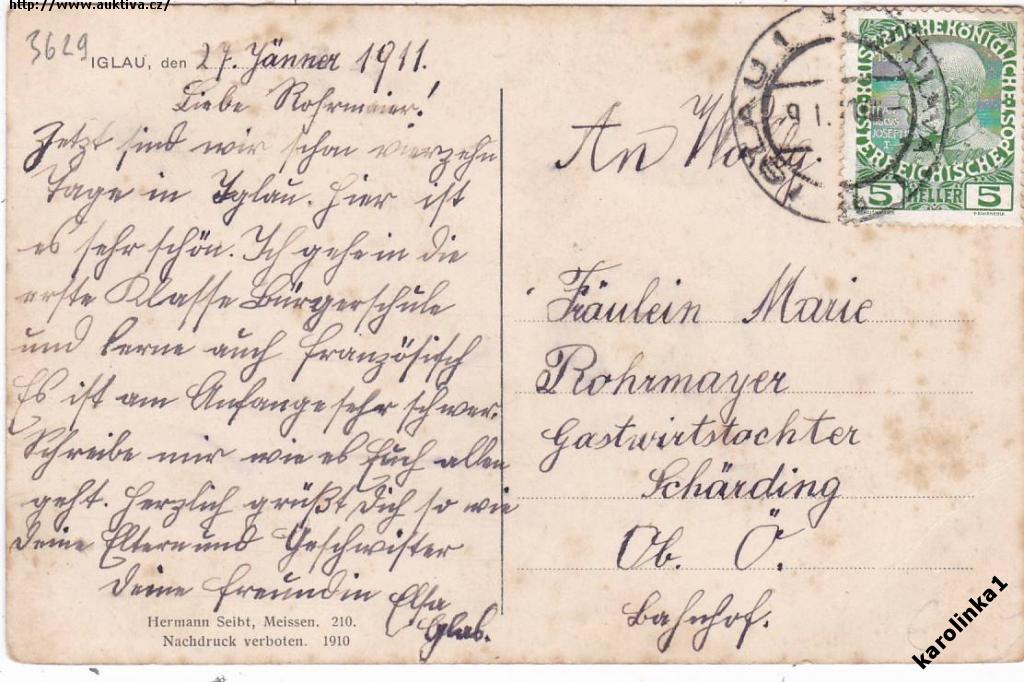 http://www.auktiva.cz/
3629
IGLAU, den 27. Jänner 1911.
Liebe Rohrmaier!
Jetzt sind wir schon vierzehn
Tage in Iglau. Hier ist
es sehr schön. Ich gehe in die
erste Klasse Bürgerschule
und lerne auch französisch
Es ist am Anfange sehr schwer.
Schreibe mir wie es Euch allen
geht. Herzlich grüßt Dich so wie
Deine Eltern und Geschwister
Deine Freundin Elsa
Glab.
Hermann Seibt, Meissen. 210.
Nachdruck verboten. 1910
An
IGLAU 1
9 I.
IHLAVA
KAISERLICHE KÖNIGLICHE
ÖSTERREICHISCHE POST
5 HELLER 5
Fräulein Marie
Rohrmayer
Gastwirtstochter
Schärding
Ob. Ö.
Bahnhof.
karolinka1